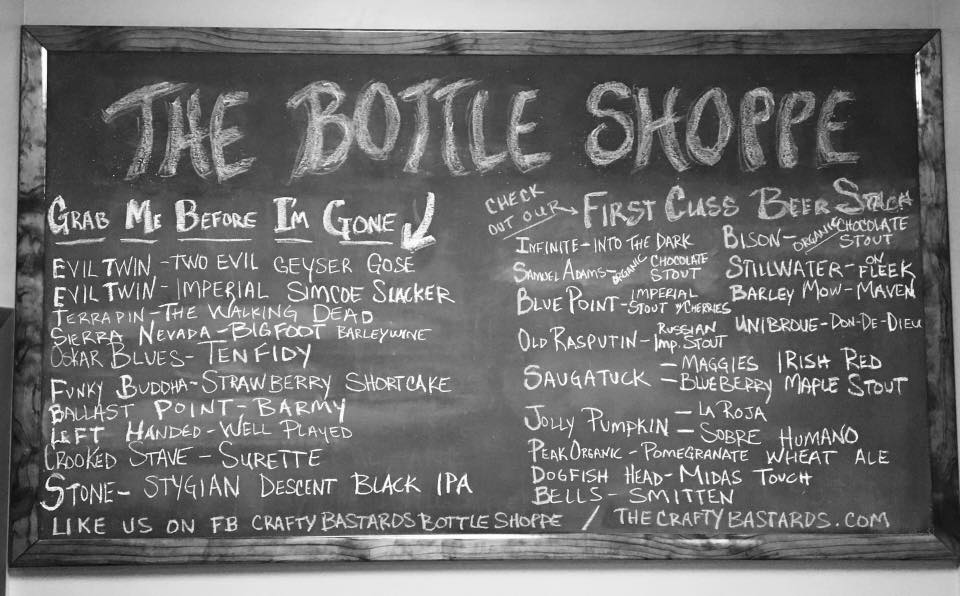 THE BOTTLE SHOPPE
GRAB ME BEFORE I'M GONE
EVIL TWIN - TWO EVIL GEYSER GOSE
EVIL TWIN - IMPERIAL SIMCOE SLACKER
TERRAPIN - THE WALKING DEAD
SIERRA NEVADA - BIGFOOT BARLEYWINE
OSKAR BLUES - TEN FIDY
FUNKY BUDDHA - STRAWBERRY SHORTCAKE
BALLAST POINT - BARMY
LEFT HANDED - WELL PLAYED
CROOKED STAVE - SURETTE
STONE - STYGIAN DESCENT BLACK IPA
CHECK
OUT OUR → FIRST CLASS BEER STASH
INFINITE - INTO THE DARK
SAMUEL ADAMS - ORGANIC CHOCOLATE
STOUT
BLUE POINT - IMPERIAL
STOUT W/CHERRIES
OLD RASPUTIN - RUSSIAN
IMP. STOUT
BISON - ORGANIC CHOCOLATE
STOUT
STILLWATER - ON
FLEEK
BARLEY MOW - MAVEN
UNIBROUE - DON-DE-DIEU
SAUGATUCK - MAGGIES IRISH RED
- BLUEBERRY MAPLE STOUT
JOLLY PUMPKIN - LA ROJA
- SOBRE HUMANO
PEAK ORGANIC - POMEGRANATE WHEAT ALE
DOGFISH HEAD - MIDAS TOUCH
BELLS - SMITTEN
LIKE US ON FB CRAFTY BASTARDS BOTTLE SHOPPE / THECRAFTYBASTARDS.COM